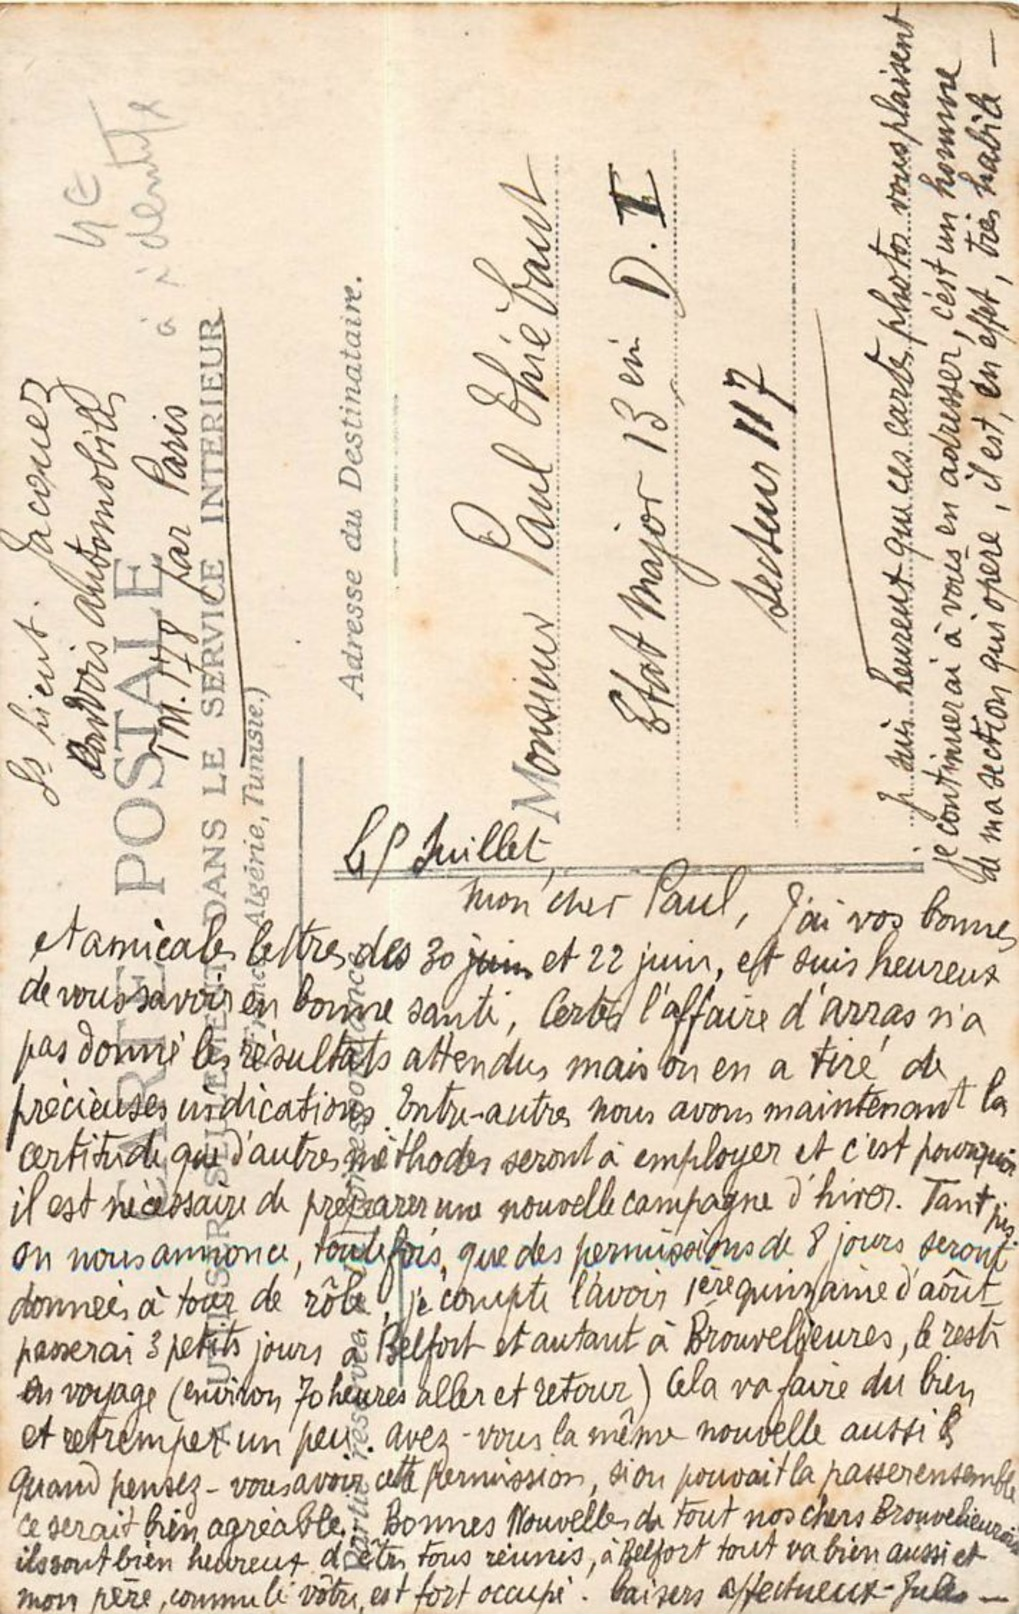 CARTE POSTALE
A UTILISER SEULEMENT DANS LE SERVICE INTERIEUR
(France, Algérie, Tunisie.)
Partie réservée à la correspondance
Adresse du Destinataire.
4e
à
Ss Lieut. Jacquez
Convois automobiles
T.M. 178 par Paris
Monsieur Paul Thiébaut
Etat Major 13 em D. I
Secteur 117
Le 9 Juillet,
mon cher Paul, J'ai vos bonnes
et amicales lettres des 30 juin et 22 juin, et suis heureux
de vous savoir en bonne santé, Certes l'affaire d'arras n'a
pas donné les résultats attendus mais on en a tiré de
précieuses indications. Entre-autres nous avons maintenant la
certitude que d'autres méthodes seront à employer et c'est pourquoi
il est nécessaire de préparer une nouvelle campagne d'hiver. Tant pis.
on nous annonce, toutefois, que des permissions de 8 jours seront
données à tour de rôle, je compte l'avoir 1ère quinzaine d'août
passerai 3 petits jours à Belfort et autant à Brouvelieures, le reste
en voyage (environ 70 heures aller et retour) Cela va faire du bien
et retremper un peu. avez-vous la même nouvelle aussi &
quand pensez-vous avoir cette permission, si on pouvait la passer ensemble
ce serait bien agréable. Bonnes Nouvelles de tout nos chers Brouvelieurois
ils sont bien heureux d'être tous réunis, à Belfort tout va bien aussi et
mon père, comme le vôtre, est fort occupé. baisers affectueux - Jules —
Je suis heureux que ces cartes photos vous plaisent
je continuerai à vous en adresser, c'est un homme
de ma section qui opère, il est, en effet, très habile —